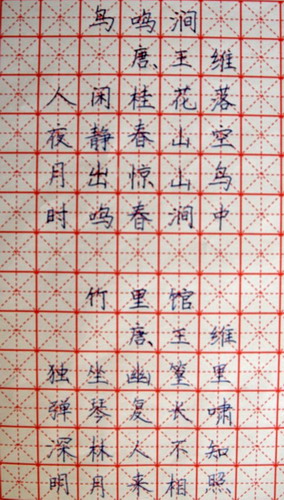 鸟鸣涧
唐、王维
人闲桂花落
夜静春山空
月出惊山鸟
时鸣春涧中
竹里馆
唐、王维
独坐幽篁里
弹琴复长啸
深林人不知
明月来相照